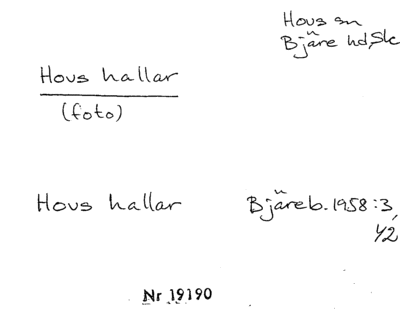 Hovs sn
Bjäre hd, Sk
Hovs hallar
(foto)
Hovs hallar Bjäreb. 1958:3,
42
Nr 19190